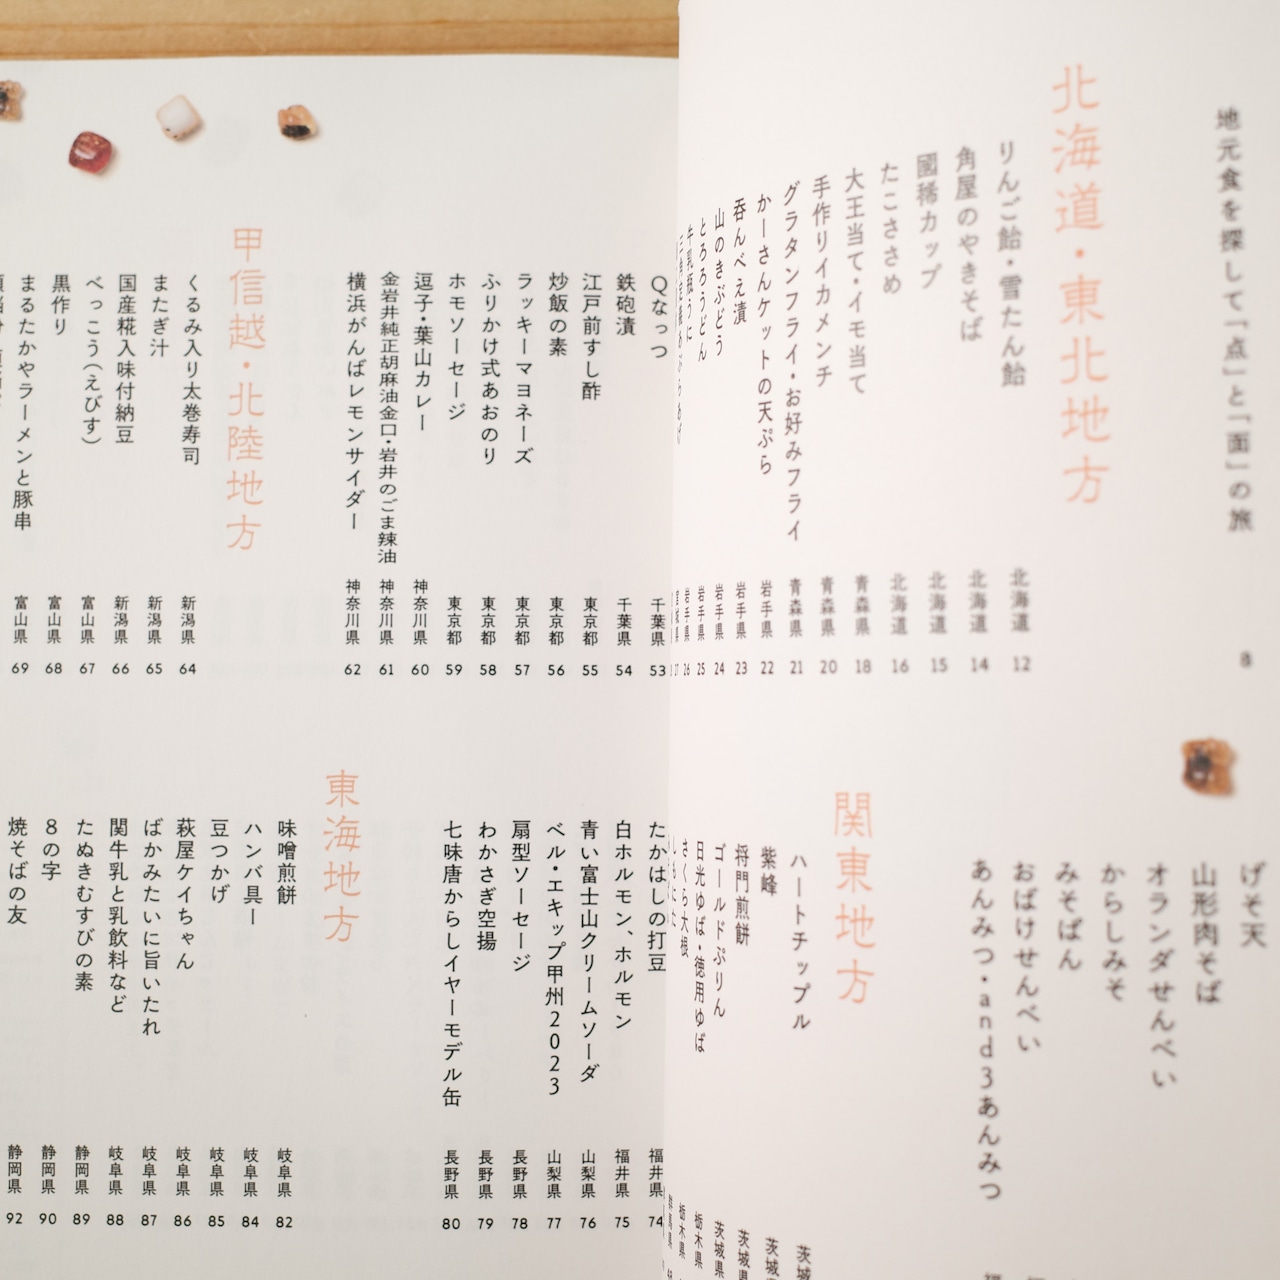 地元食を探して「点」と「面」の旅 8
北海道・東北地方
りんご飴・雪たん飴 北海道 12
角屋のやきそば 北海道 14
國稀カップ 北海道 15
たこささめ 北海道 16
大王当て・イモ当て 青森県 18
手作りイカメンチ 青森県 20
グラタンフライ・お好みフライ 青森県 21
かーさんケットの天ぷら 岩手県 22
呑んべえ漬 岩手県 23
山のきぶどう 岩手県 24
とろろうどん 岩手県 25
牛乳瓶うに 岩手県 26
げそ天
山形肉そば
オランダせんべい
からしみそ
みそぱん
おばけせんべい
あんみつ・and3あんみつ
関東地方
ハートチップル 茨城
紫峰 茨城県
将門煎餅 茨城県
ゴールドぷりん 茨城県
日光ゆば・徳用ゆば 栃木県
さくら大根 栃木県
Qなっつ 千葉県 53
鉄砲漬 千葉県 54
江戸前すし酢 東京都 55
炒飯の素 東京都 56
ラッキーマヨネーズ 東京都 57
ふりかけ式あおのり 東京都 58
ホモソーセージ 東京都 59
逗子・葉山カレー 神奈川県 60
金岩井純正胡麻油金口・岩井のごま辣油 神奈川県 61
横浜がんばレモンサイダー 神奈川県 62
甲信越・北陸地方
くるみ入り太巻寿司 新潟県 64
またぎ汁 新潟県 65
国産糀入味付納豆 新潟県 66
べっこう(えびす) 富山県 67
黒作り 富山県 68
まるたかやラーメンと豚串 富山県 69
たかはしの打豆 福井県 74
白ホルモン、ホルモン 福井県 75
青い富士山クリームソーダ 山梨県 76
ベル・エキップ甲州2023 山梨県 77
扇型ソーセージ 長野県 78
わかさぎ空揚 長野県 79
七味唐からしイヤーモデル缶 長野県 80
東海地方
味噌煎餅 岐阜県 82
ハンバ具ー 岐阜県 84
豆つかげ 岐阜県 85
萩屋ケイちゃん 岐阜県 86
ばかみたいに旨いたれ 岐阜県 87
関牛乳と乳飲料など 岐阜県 88
たぬきむすびの素 静岡県 89
8の字 静岡県 90
焼そばの友 静岡県 92